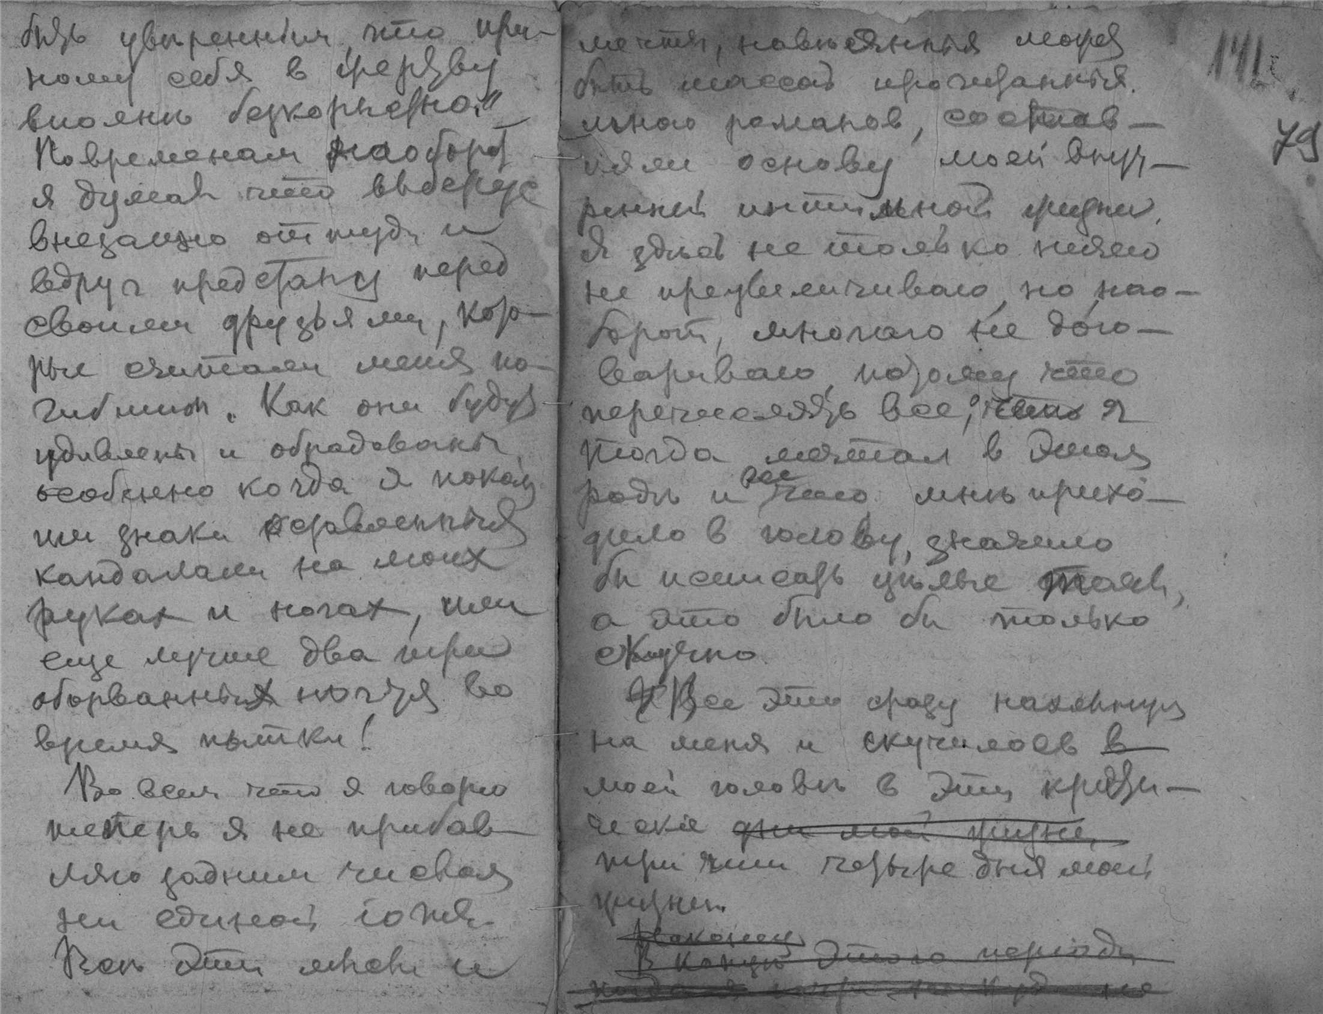 быть увѣреннымъ, что при-
ношу себя в жертву
вполнѣ безкорыстно."
По временам наоборот
я думал что выберусь
внезапно оттуда и
вдруг предстану перед
своими друзьями, кото-
рые считали меня по-
гибшим. Как они будут
удивлены и обрадованы,
особенно когда я покажу
им знаки оставленныя
кандалами на моих
руках и ногах, или
еще лучше два три
оборванных ногтя во
время пытки!
Во всем что я говорю
теперь я не прибав-
ляю задним числом
ни единой іоты.
Всѣ эти мысли и
мечты, навѣянныя может
быть массой прочитанных
мною романов, состав-
ляли основу моей внут-
ренней интимной жизни.
Я здѣсь не только ничего
не преувеличиваю, но нао-
борот, многаго не дого-
вариваю, потому что
перечислять все, что я
тогда мечтал в этом
родѣ и все что мнѣ прихо-
дило в голову, значило
бы исписать цѣлые томы,
а это было бы только
скучно.
И Все это сразу нахлынуло
на меня и скучилось в
моей головѣ в эти крити-
ческіе дни моей жизни,
три или четыре дня моей
жизни.
Наконец
В концѣ этого періода
141
79